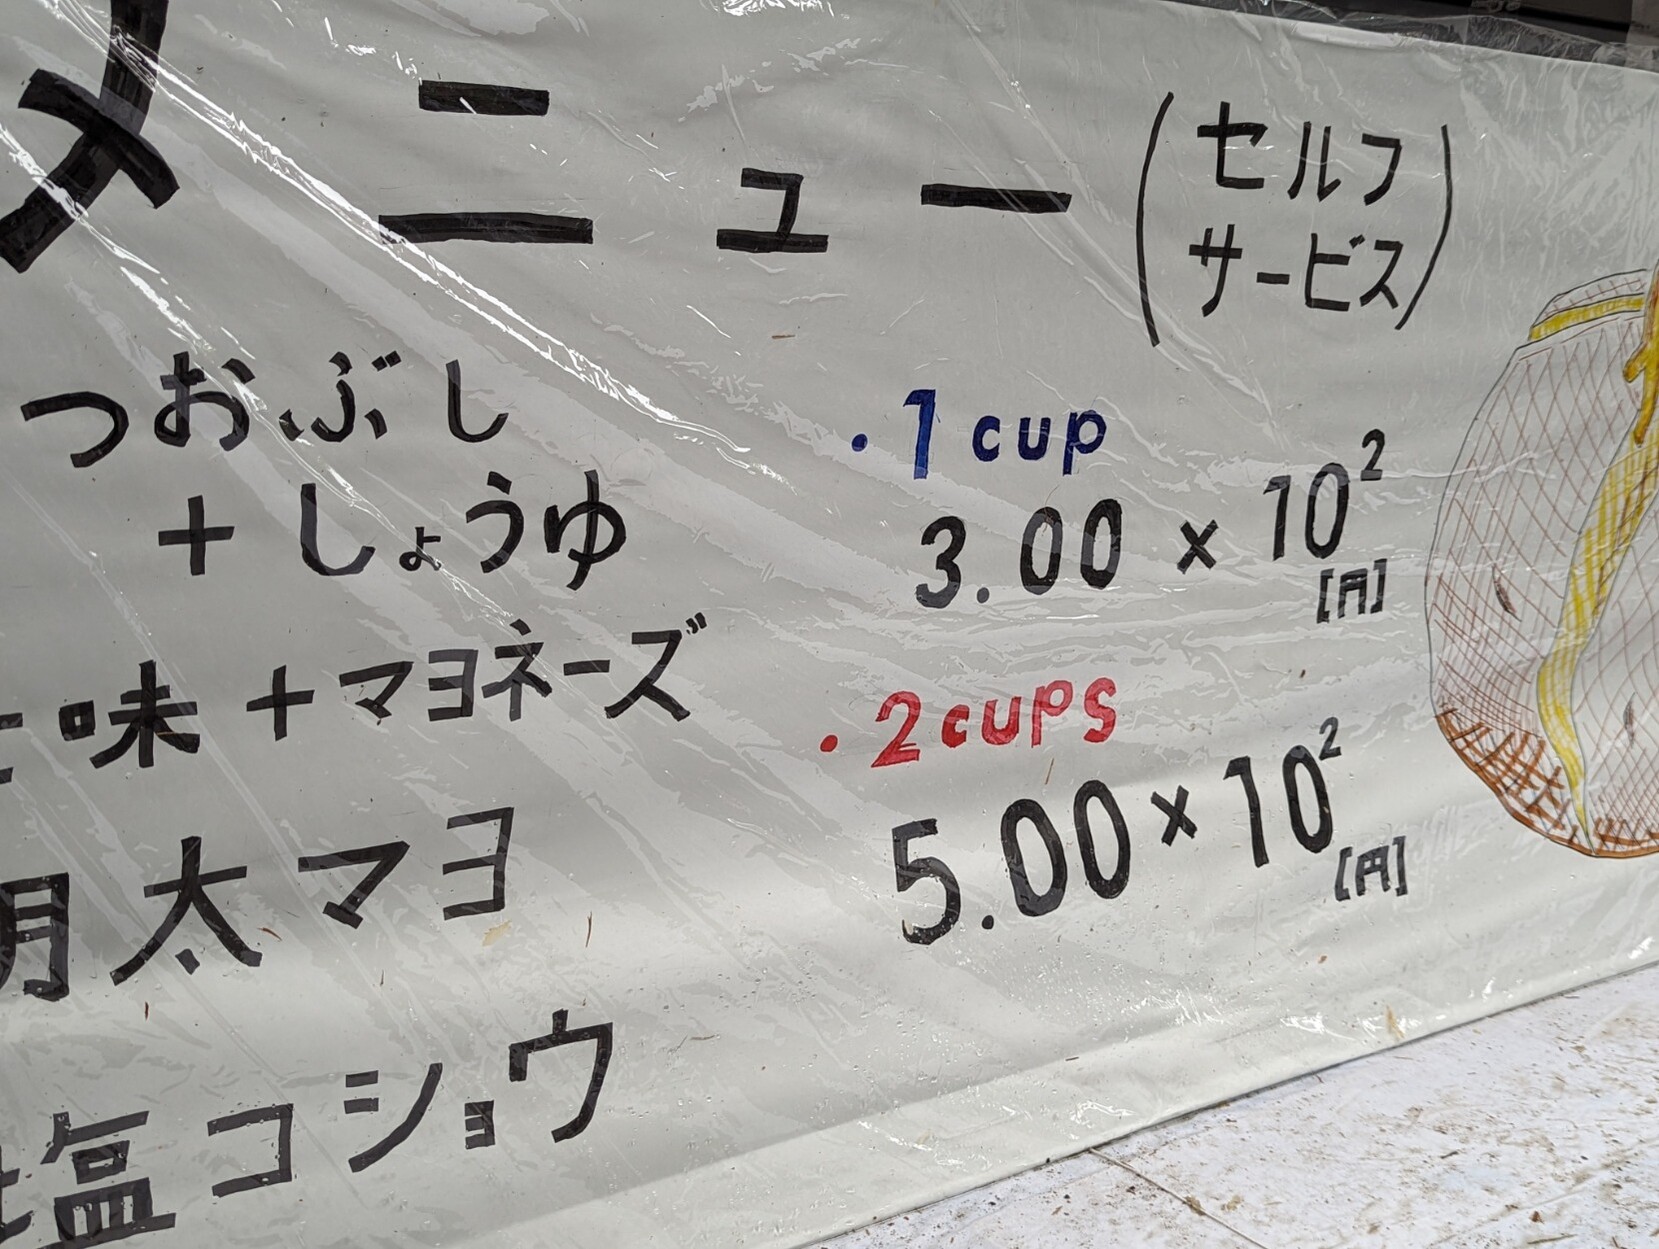 メニュー
(セルフ
サービス)
つおぶし
+しょうゆ
味+マヨネーズ
明太マヨ
塩コショウ
・1 cup
3.00 × 10²
[円]
・2 cups
5.00 × 10²
[円]